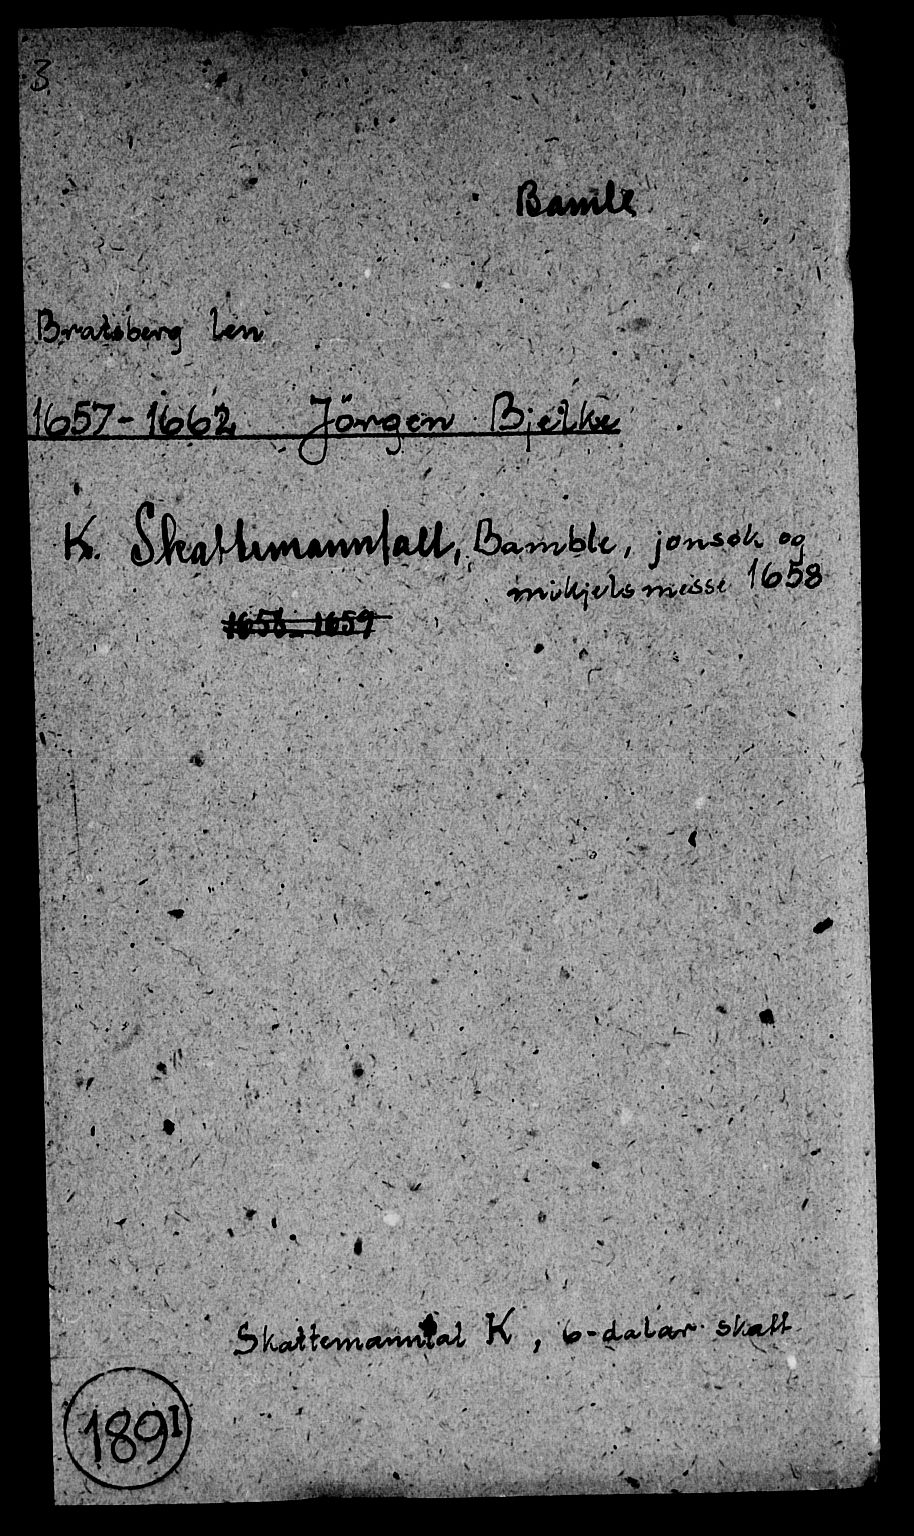 3
Bamle
Bratsberg len
1657-1662 Jörgen Bjelke
K. Skattemanntall, Bamble, jonsok og
mikjelsmesse 1658
1658-1659
Skattemanntal K, 6-dalar skatt
189I